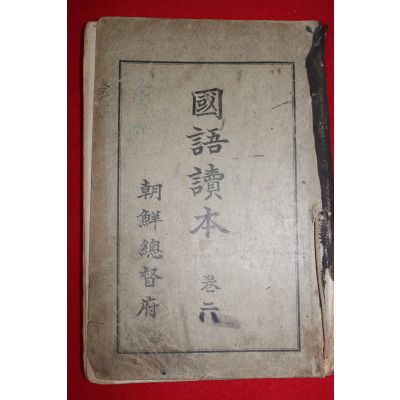 國語讀本
卷六
朝鮮總督府